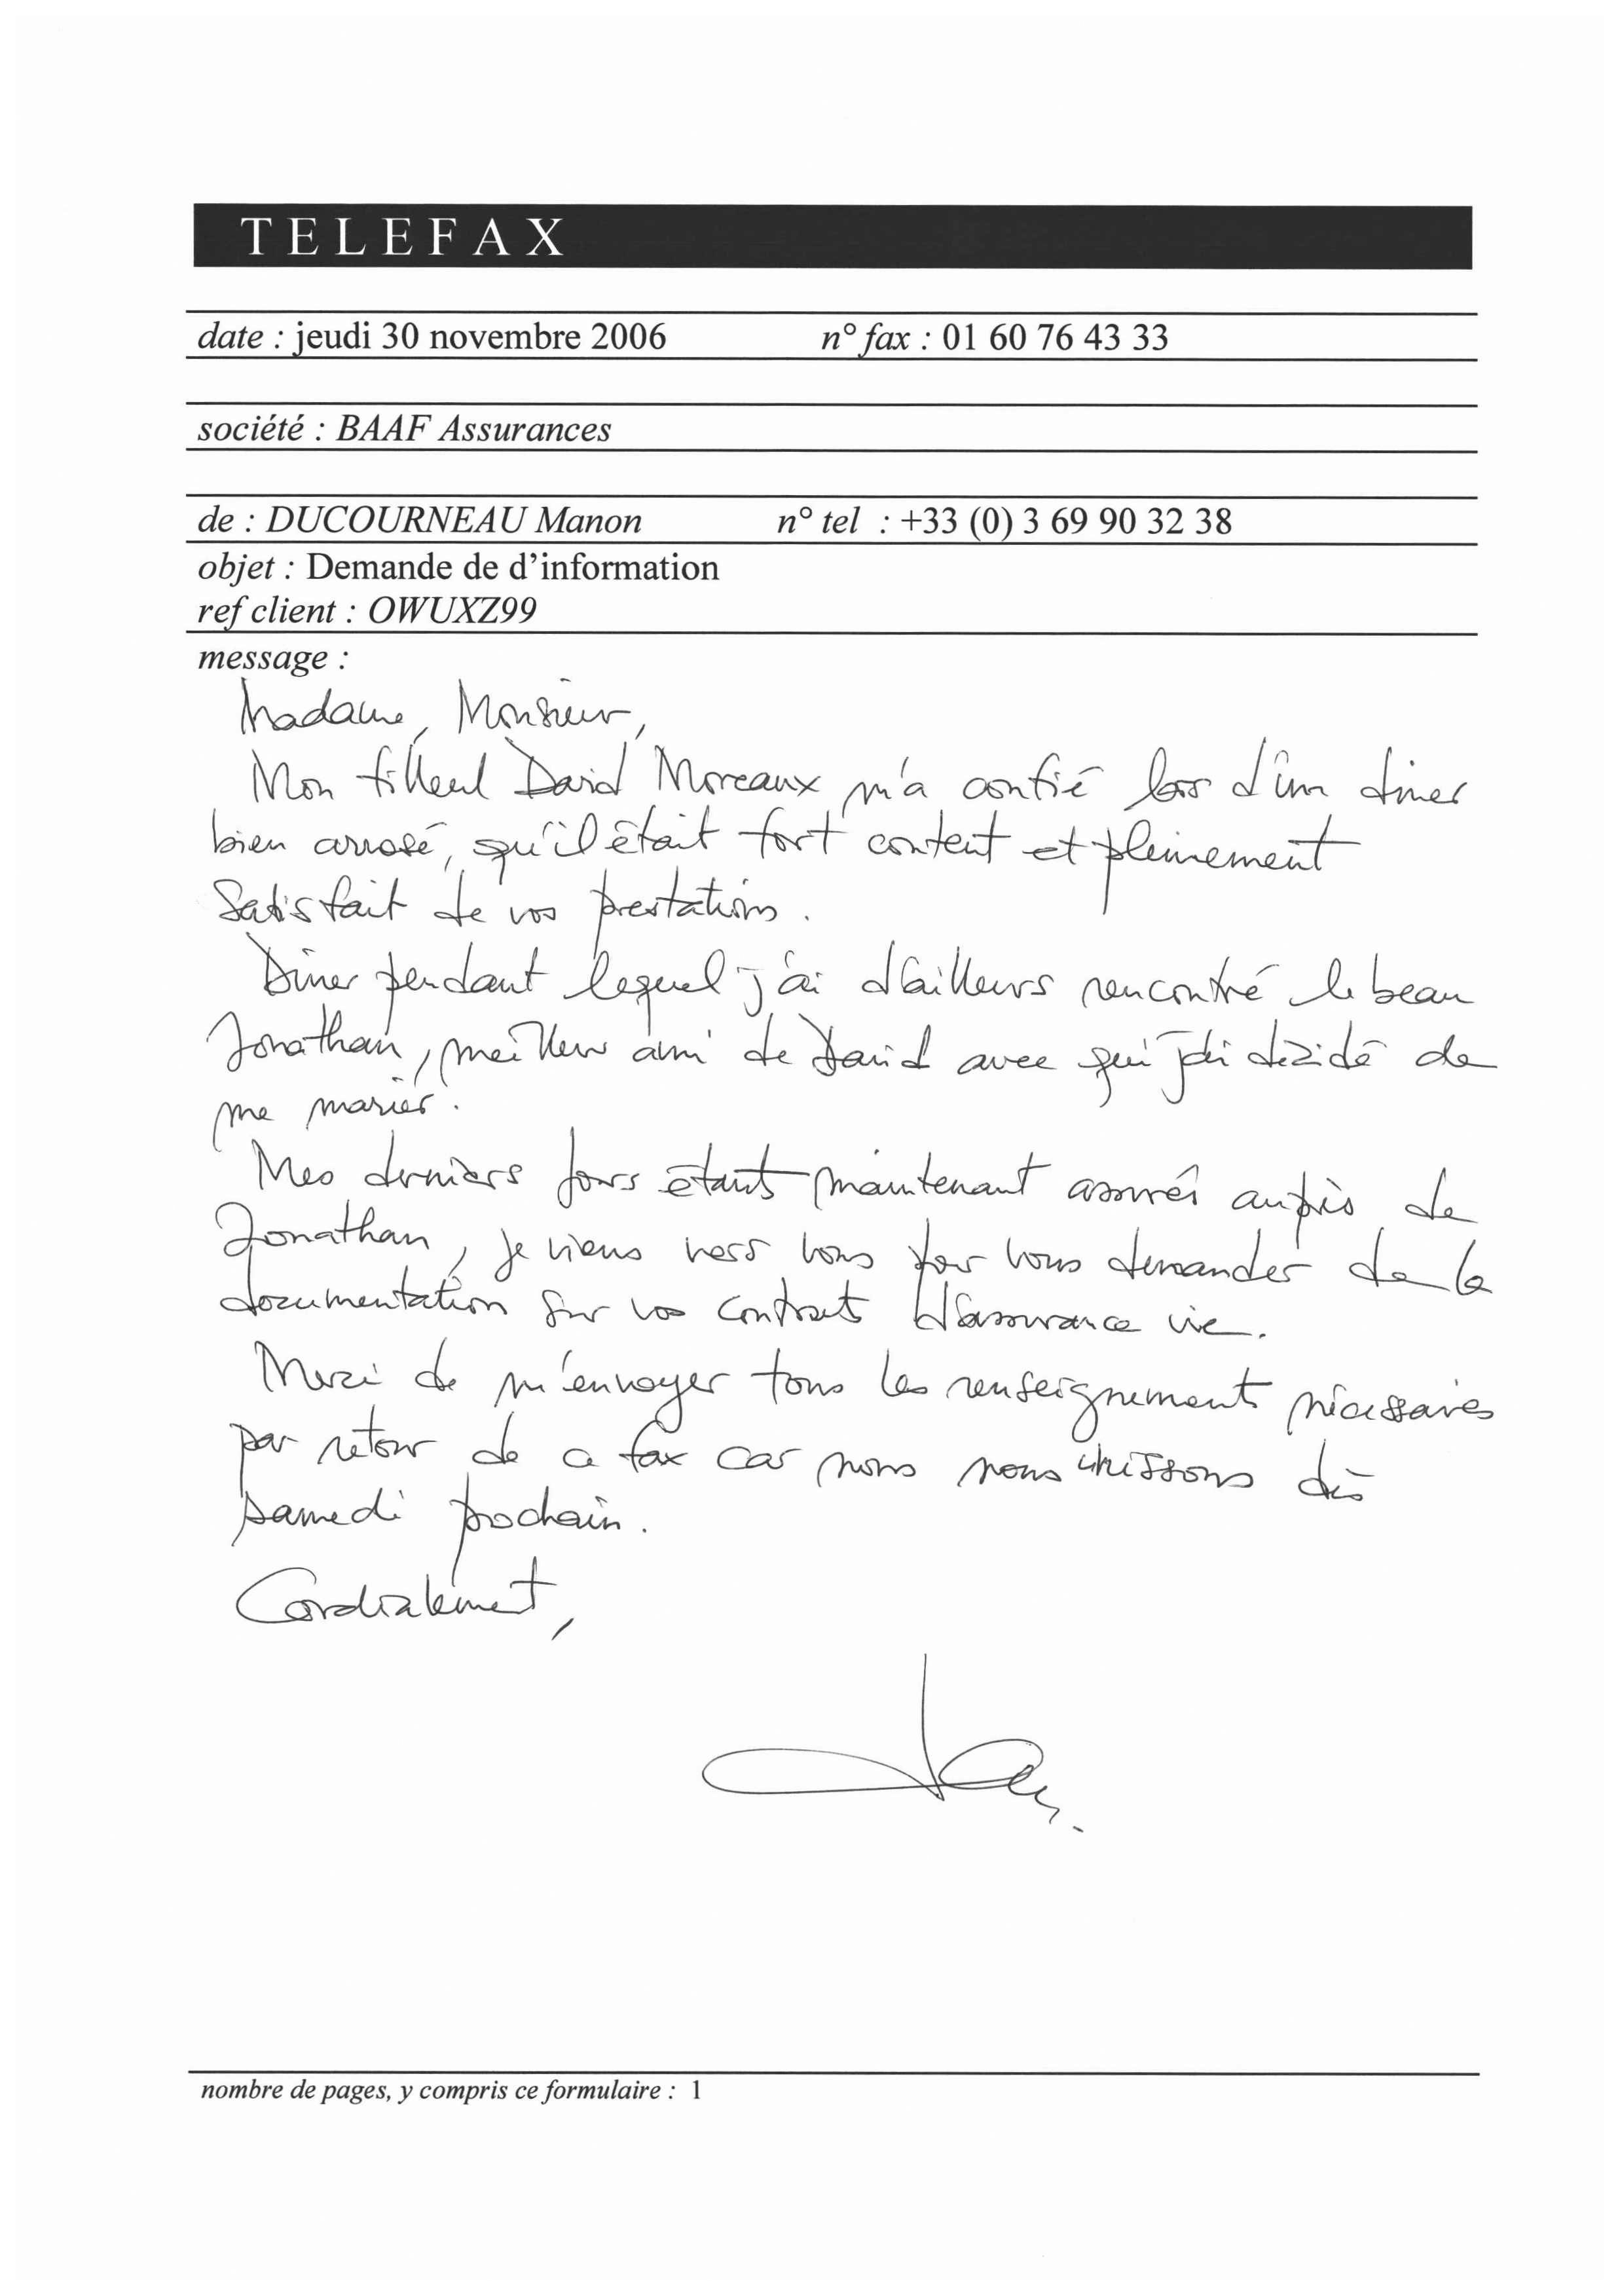 TELEFAX
date : jeudi 30 novembre 2006 n° fax : 01 60 76 43 33
société : BAAF Assurances
de : DUCOURNEAU Manon n° tel : +33 (0) 3 69 90 32 38
objet : Demande de d'information
ref client : OWUXZ99
message :
Madame, Monsieur,
Mon filleul David Moreaux m'a confié lors d'un diner
bien arrosé, qu'il était fort content et pleinement
satisfait de vos prestations.
Diner pendant lequel j'ai d'ailleurs rencontré le beau
Jonathan, meilleur ami de David avec qui j'ai décidé de
me marier.
Mes derniers jours étant maintenant assurés auprès de
Jonathan, je viens vers vous pour vous demander de la
documentation sur vos contrats d'assurance vie.
Merci de m'envoyer tous les renseignements nécessaires
par retour de ce fax car nous nous unissons dès
samedi prochain.
Cordialement,
nombre de pages, y compris ce formulaire : 1